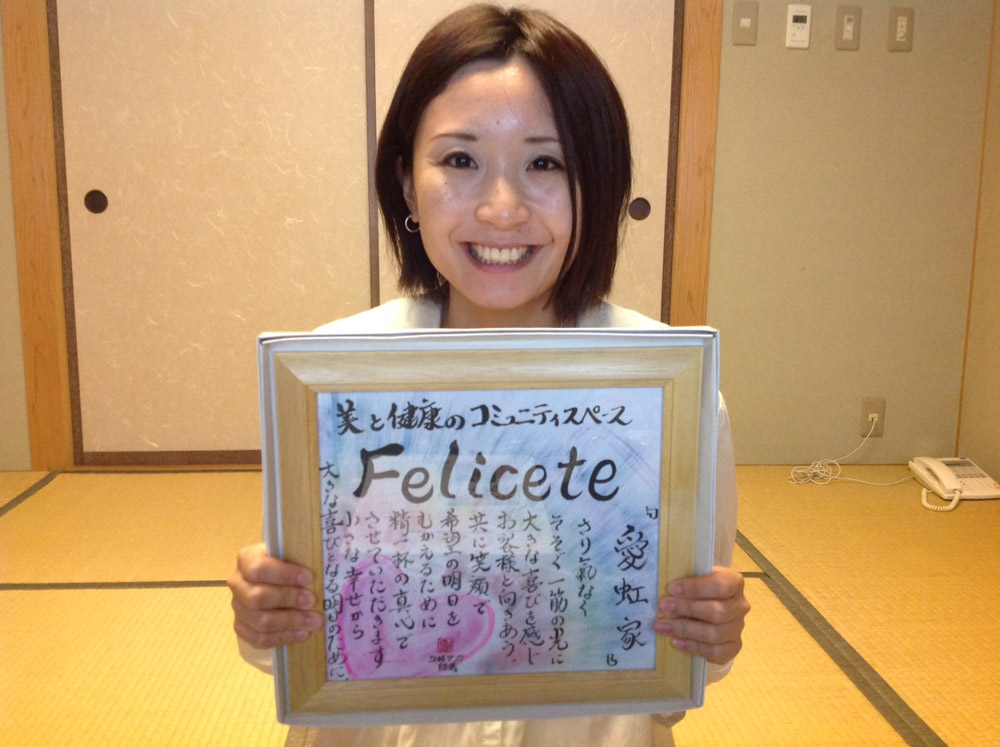 美と健康のコミュニティスペース
Felicete
愛虹家
さり氣なく
そそぐ一筋の光に
大きな喜びを感じ
お客様と向きあう。
共に笑顔で
希望の明日を
むかえるために
精一杯の真心で
させていただきます
小さな幸せから
大きな喜びとなる明日のために